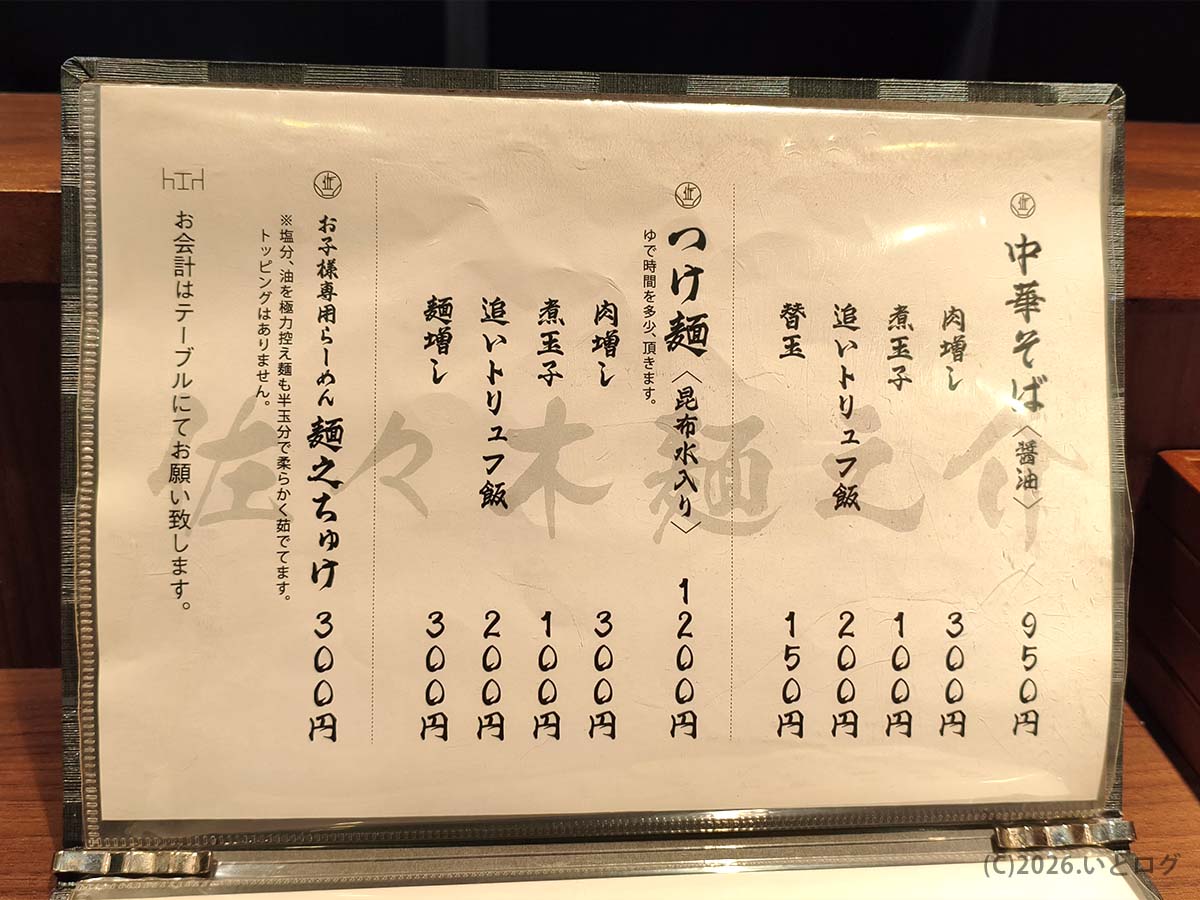 中華そば〈醤油〉 950円
肉増し 300円
煮玉子 100円
追いトリュフ飯 200円
替玉 150円
つけ麺〈昆布水入り〉 1200円
ゆで時間を多少、頂きます。
肉増し 300円
煮玉子 100円
追いトリュフ飯 200円
麺増し 300円
お子様専用らーめん 麺之ちゅけ 300円
※塩分、油を極力控え麺も半玉分で柔らかく茹でてます。
トッピングはありません。
お会計はテーブルにてお願い致します。
佐々木麺之介
(C)2026.いとログ